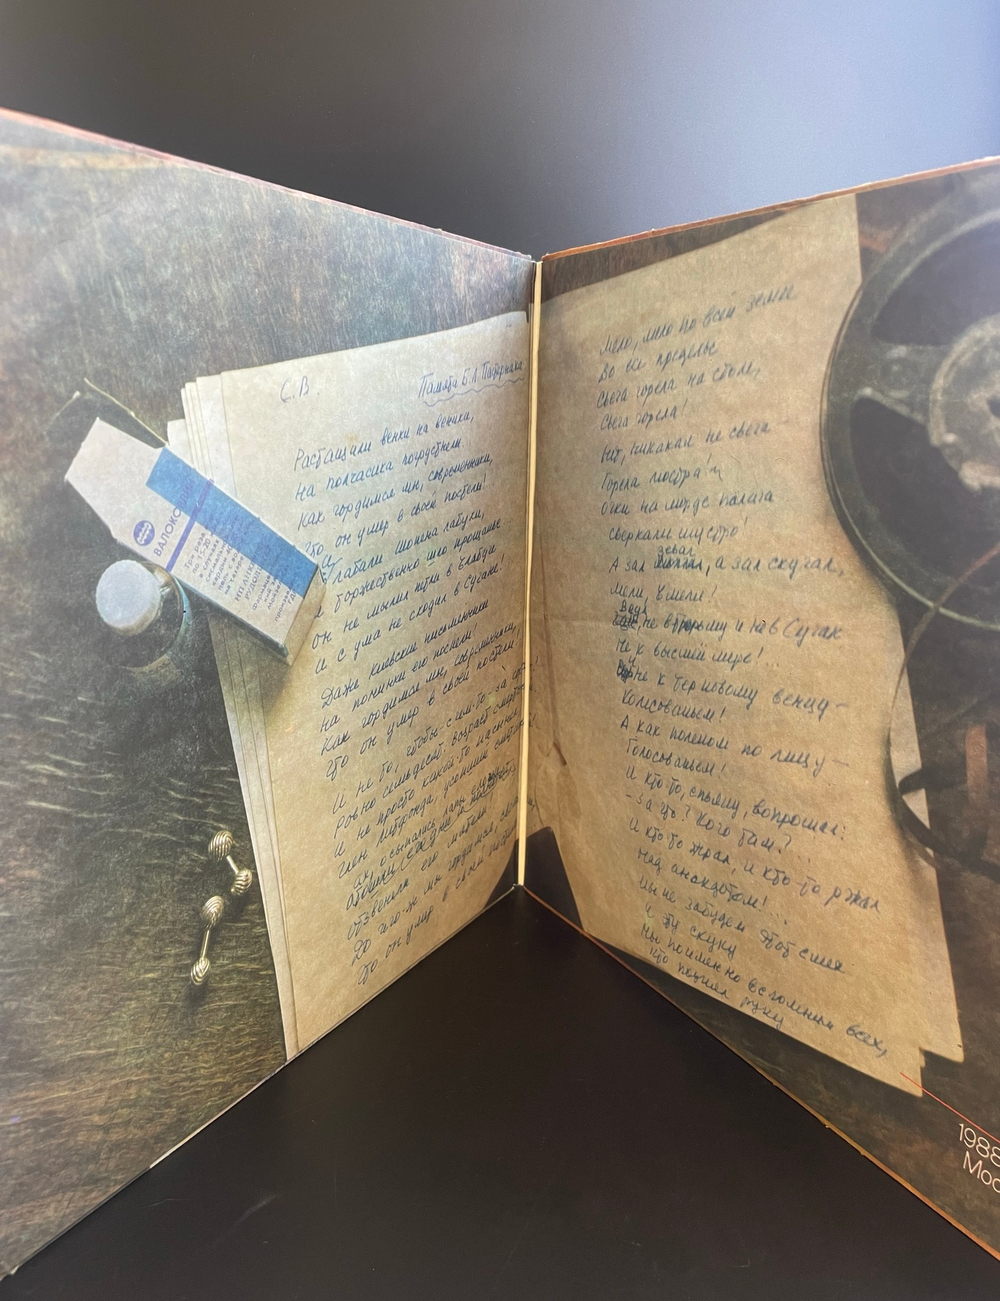 С. В.
Памяти Б. Л. Пастернака
Растащили венки на веники,
На полчасика погрустнели...
Как гордимся мы, современники,
Что он умер в своей постели!
И Шопена лабухи,
И торжественно шло прощанье
Он не мылил петли в Елабуге
И с ума не сходил в Сучане!
Даже киевские письменники
На поминки его поспели!
Как гордимся мы, современники,
Что он умер в своей постели!
И не то, чтобы с чем-то за
Ровно семьдесят, возраст смертный
И не просто какой-то пасынок
Член Литфонда, усопший
Ах, осыпались лапы
отзвенели его метели
До чего-ж мы гордимся,
Что он умер в своей
Мело, мело по всей земле
Во все пределы
Свеча горела на столе,
Свеча горела!
Нет, никакая не свеча —
Горела люстра!
Очки на морде палача
сверкали шустро!
зевал
А зал, а зал скучал,
Мели, Емеля!
Ведь
не в тюрьму и не в Сучан
Не к высшей мере!..
И не к терновому венцу —
Колесованьем!
А как поленом по лицу —
Голосованьем!
И кто-то, спьяну, вопрошал:
- За что? Кого там?...
И кто-то жрал, и кто-то ржал
Над анекдотом!...
Мы не забудем этот смех
и эту скуку
Мы поименно вспомним всех,
кто поднял руку
ВАЛОКО
1988
Мос